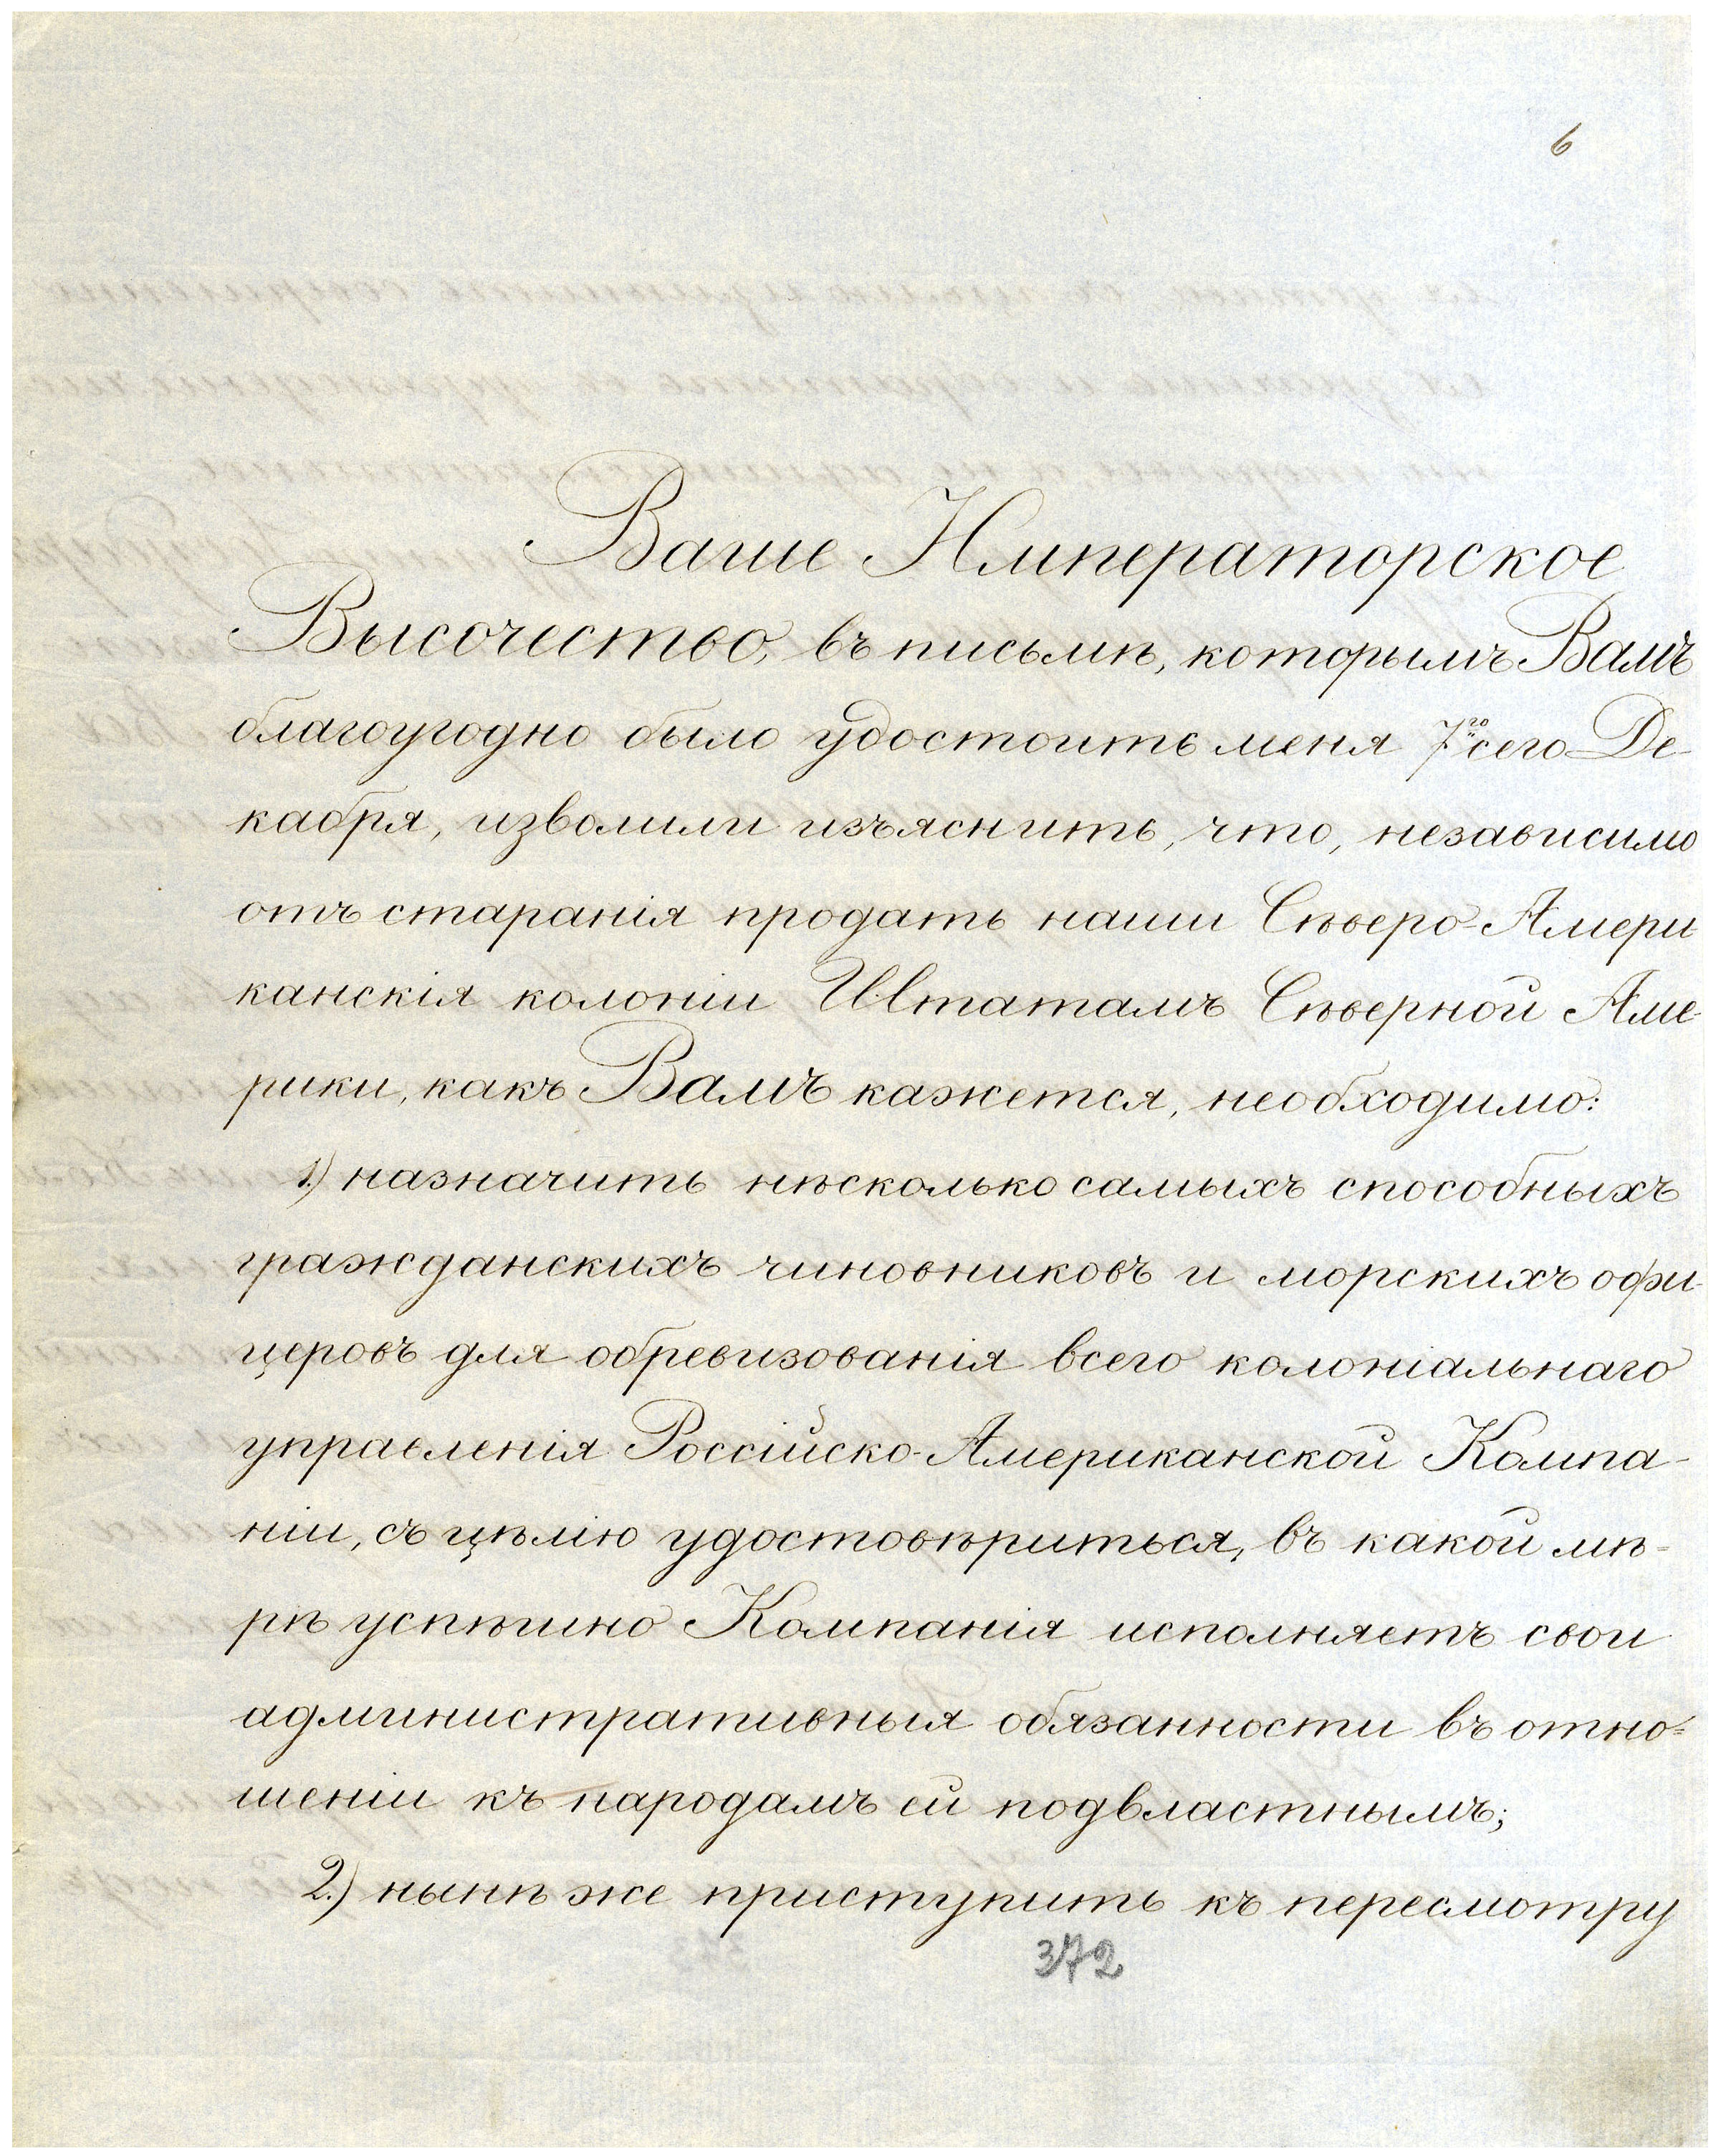 6
Ваше Императорское
Высочество, въ письмѣ, которымъ Вамъ
благоугодно было удостоить меня 7го сего Де-
кабря, изволили изъяснить, что, независимо
отъ старанія продать наши Сѣверо-Амери
канскія колоніи Штатамъ Сѣверной Аме-
рики, какъ Вамъ кажется, необходимо:
1.) назначить нѣсколько самыхъ способныхъ
гражданскихъ чиновниковъ и морскихъ офи-
церовъ для обревизованія всего колоніальнаго
управленія Россійско-Американской Компа-
ніи, съ цѣлію удостовѣриться, въ какой мѣ-
рѣ успѣшно Компанія исполняетъ свои
административныя обязанности въ отно=
шеніи къ народамъ ей подвластнымъ;
2.) нынѣ же приступить къ пересмотру
372